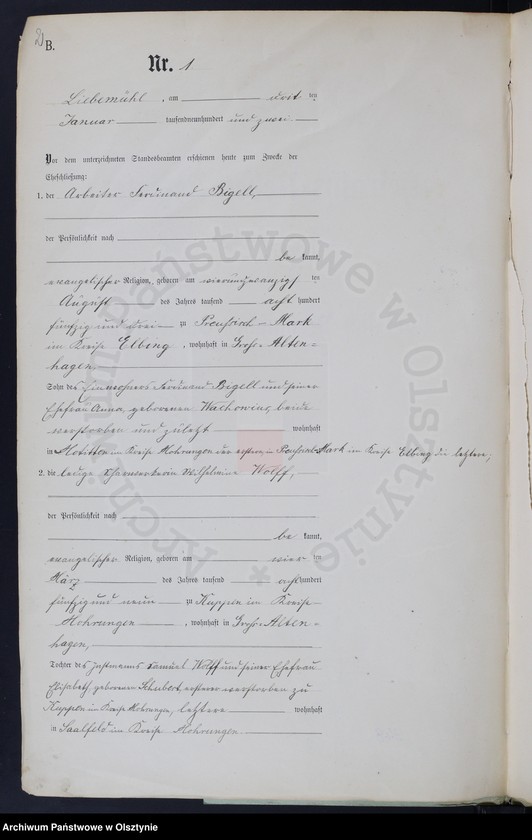 B.
Nr. 1
Liebemühl, am drit ten
Januar tausendneunhundert und zwei.
Vor dem unterzeichneten Standesbeamten erschienen heute zum Zwecke der
Eheschließung:
1. der Arbeiter Ferdinand Bigell,
der Persönlichkeit nach
be kannt,
evangelischer Religion, geboren am vierundzwanzigs ten
August des Jahres tausend acht hundert
fünfzig und drei zu Preußisch-Mark
im Kreise Elbing, wohnhaft in Groß-Alten=
hagen,
Sohn des Einwohners Ferdinand Bigell und seiner
Ehefrau Anna, geborenen beide
verstorben und zuletzt wohnhaft
in im Kreise Mohrungen der erstere, in Preußisch-Mark im Kreise Elbing die letztere;
2. die ledige Wilhelmine Wolff,
der Persönlichkeit nach
be kannt,
evangelischer Religion, geboren am vier ten
März des Jahres tausend acht hundert
fünfzig und neun zu Kuppen im Kreise
Mohrungen, wohnhaft in Groß-Alten=
hagen,
Tochter des Instmanns Samuel Wolff und seiner Ehefrau
Elisabeth geborenen Schubert, ersterer verstorben zu
Kuppen im Kreise Mohrungen, letztere wohnhaft
in Saalfeld im Kreise Mohrungen
Archiwum Państwowe w Olsztynie
Archiwum Państwowe w Olsztynie